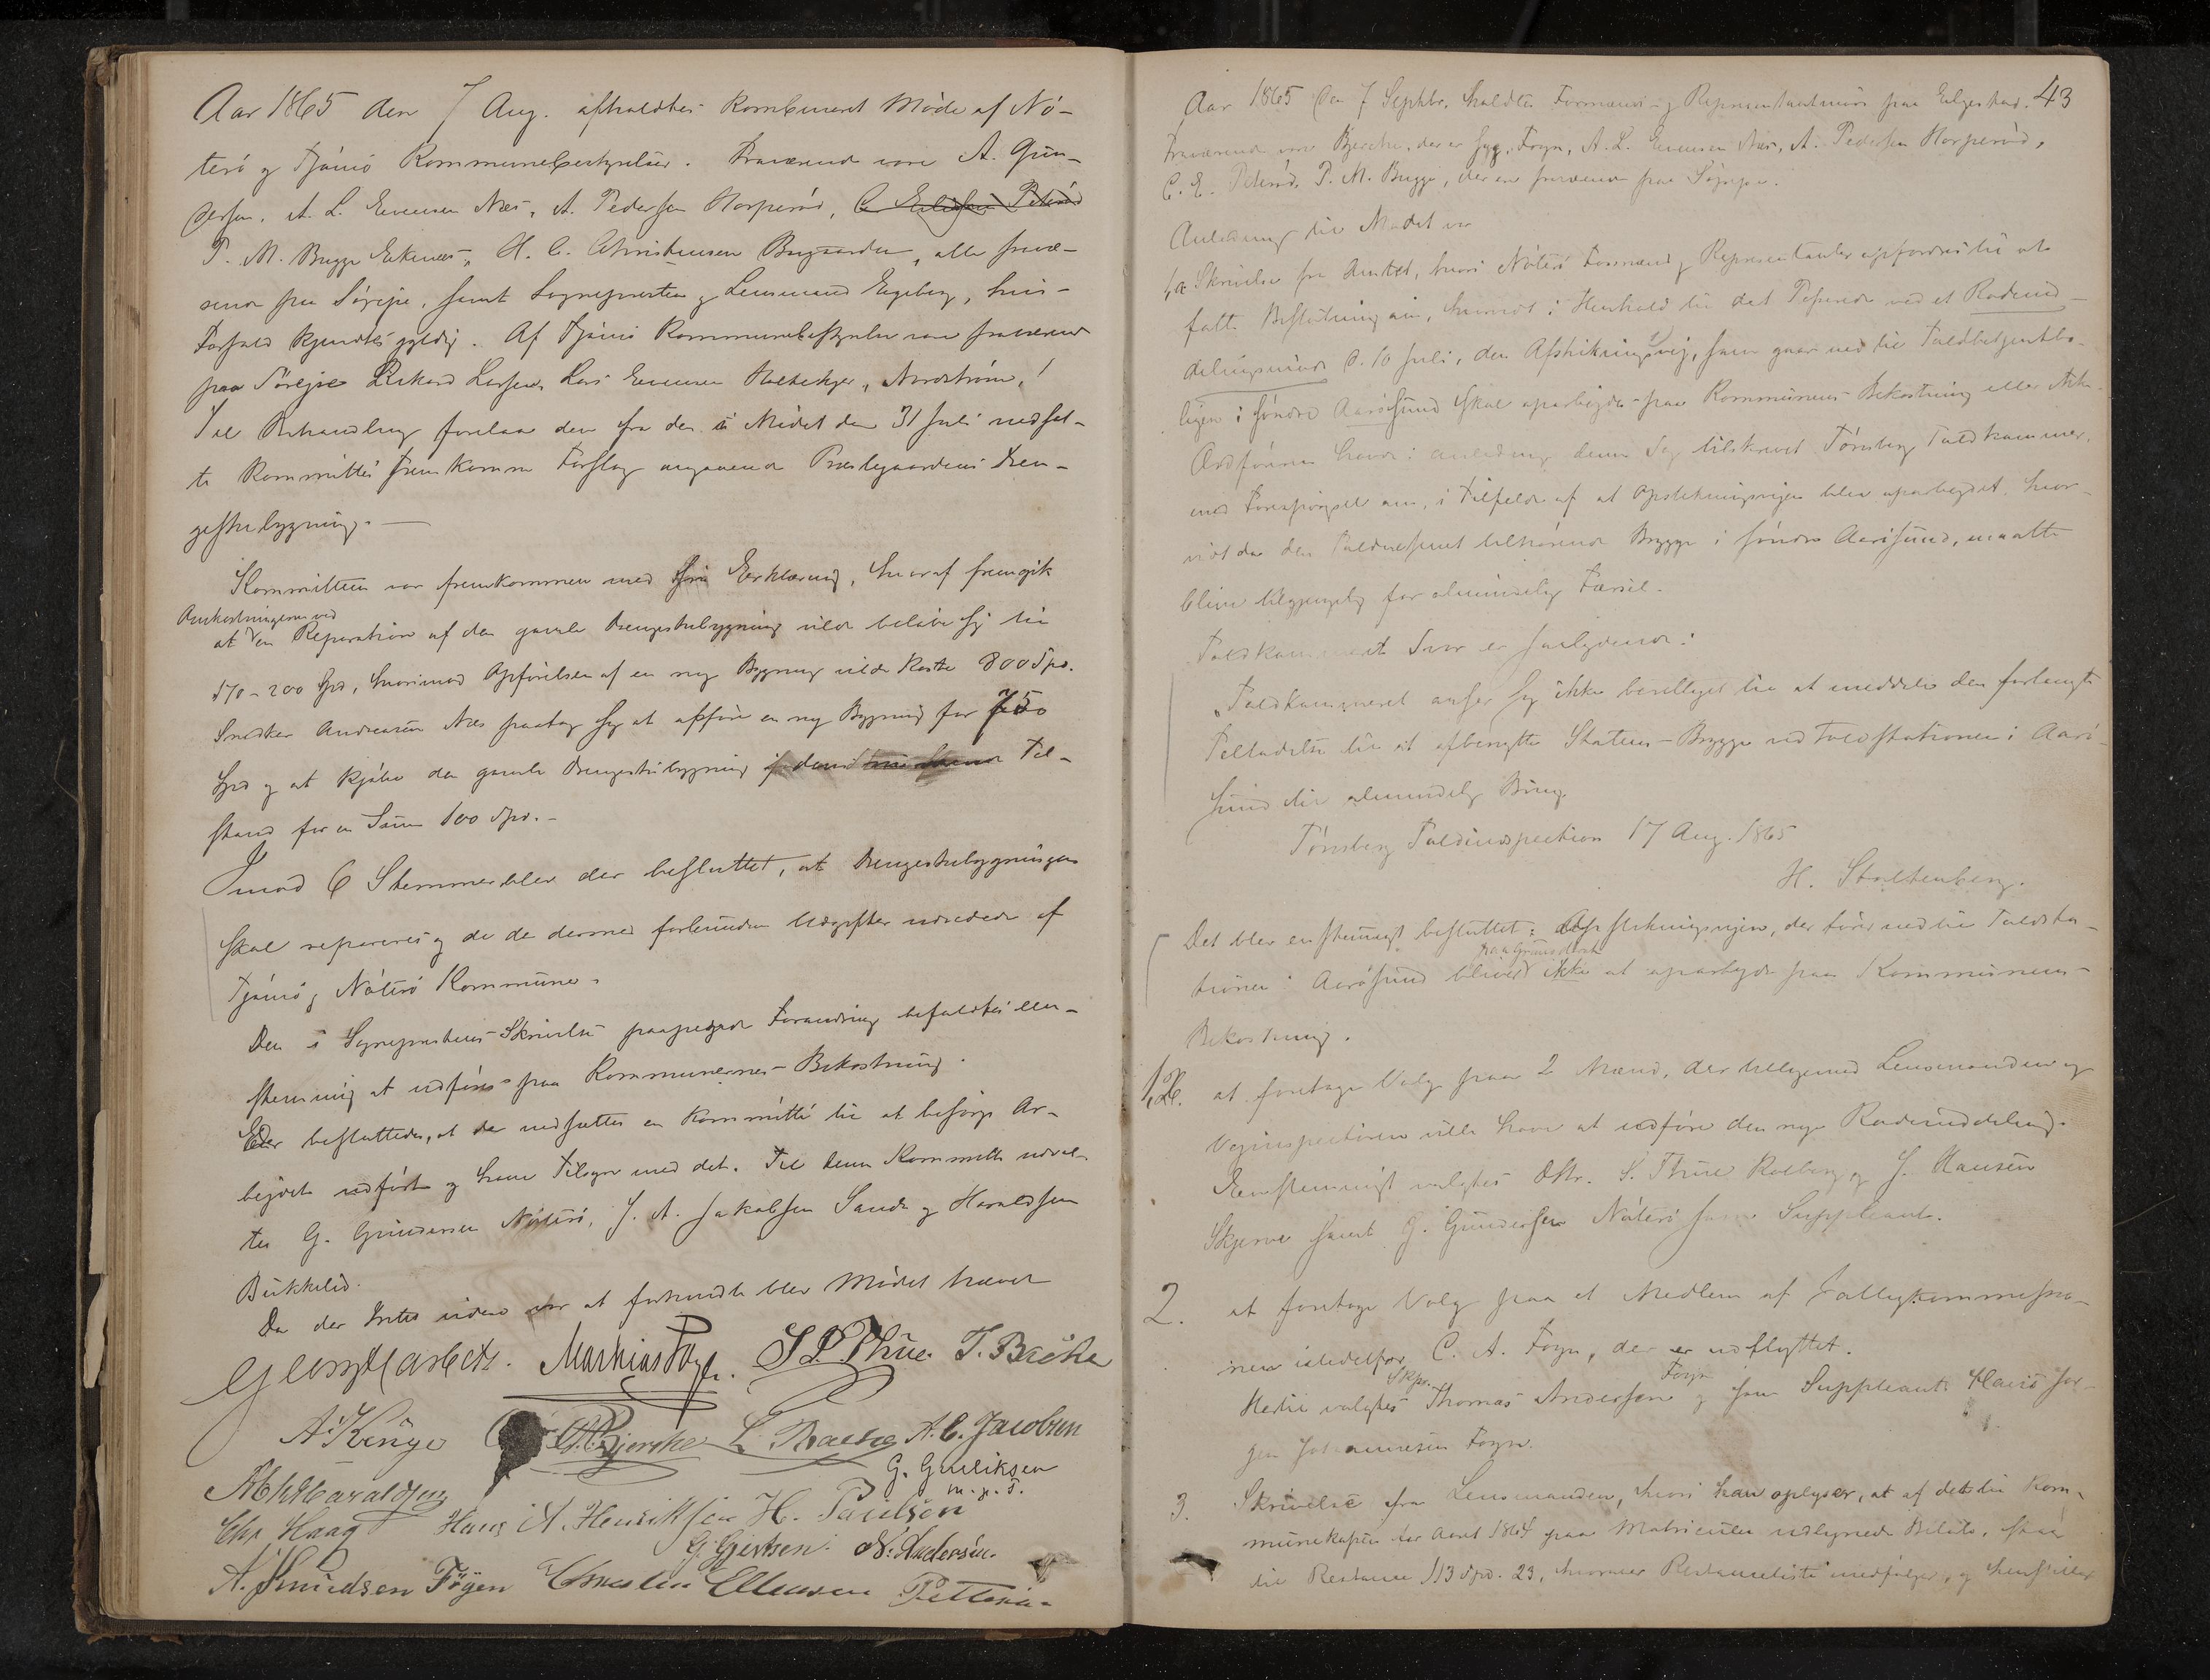 Aar 1865 den 7 Aug. afholdtes kombineret Møde af Nø-
terø og Tjømø Kommunebestyrelser. Fraværende vare A. Gun-
dersen, A. L. Evensen Næs, A. Pedersen Horperød,
P. M. Bugge Ekenæs, H. C. Christensen Bugaarden, alle fravæ-
rende paa Søreise, samt Sognepresten og Lensmand Engeberg, hvis
Forfald kjendtes gyldig. Af Tjømø Kommunebestyrelse vare fraværende
paa Søreise Rikard Larsen, Lars Evensen Holtekjær, Nordstrøm.
Til Behandling forelaa den fra den i Mødet den 31 Juli nedsat-
te Kommitte fremkomne Forslag angaaende Præstegaardens Dren-
gestubygning. —
Kommitteen var fremkommen med sin Erklæring, hvoraf fremgik
Omkostningerne ved
at en Reparation af den gamle Drengestubygning vilde beløbe sig til
170-200 Spd, hvorimod Opførelsen af en ny Bygning vilde koste 800 Spd.
Snedker Andreasen Næs paatog sig at opføre en ny Bygning for 750
Spd og at kjøbe den gamle Drengestubygning i dens Til-
stand for en Sum 100 Spd. -
mod 6 Stemmer blev der besluttet, at Drengestubygningen
skal repareres og de de dermed forbundne Udgifter udredede af
Tjømø og Nøterø Kommune.
Den i Sogneprestens Skrivelse paapegede Forandring befaldtes een-
stemmig at udføres paa Kommunernes Bekostning.
Der besluttedes, at der nedsættes en Kommitté til at besørge Ar-
beidet udført og have Tilsyn med det. Til denne Kommitte udvalg-
tes G. Gundersen Nøterø, J. A. Jakobsen Sande og Haraldsen
Bukkelid.
Da der Intet videre var at forhandle blev Mødet hævet
Mathias Føyn. S. P. Thue. T. Backe
A. Kruge Bjercke L. Bache A. C. Jacobsen
G. Guliksen
m. p. P.
Haraldsen
Chr Haag Hans A. Henriksen H. Paulsen
G. Gjertsen. N. Andersen.
A. Knudsen Föyen Christen Ellensen
43
Aar 1865 den 7 Septbr. holdtes Formænd- og Repræsentantmøde paa Elgestad.
Fraværende vare Bjercke, der er syg, Foyn, A. L. Evensen Næs, A. Pedersen Horperød,
C. E. Peterød, P. M. Bugge, der ere fraværende paa Søreise.
Anledning til Mødet var
1,a Skrivelse fra Amtet, hvori Nøterø Formænd og Repræsentanter opfordres til at
fatte Beslutning om, hvorvidt i Henhold til det Passerede ved et Rodeind-
delingsmøde d. 10 Juli, den Afstikningsvej, som gaar ned til Toldbetjentbo-
ligen i søndre Aarøsund skal oparbeides paa Kommunens Bekostning eller ikke.
Ordføreren havde i Anledning denne Sag tilskrevet Tønsberg Toldkammer,
med Forespørgsel om, i Tilfælde af at Afstikningsvejen blev oparbeidet, hvor-
vidt da den Toldvæsenet tilhørende Brygge i søndre Aarøsund, maatte
blive tilgjængelig for almindelig Færsel.
Toldkammerets Svar er saalydende:
"Toldkammeret anser sig ikke berettiget til at meddele den forlangte
Tilladelse til at afbenytte Statens-Brygge ved Toldstationen i Aarø-
sund til almindelig Brug.
Tønsberg Toldinspection 17 Aug. 1865
H. Stoltenberg.
Det blev enstemmigt besluttet: Afstikningsvejen, der fører ned til Toldsta-
paa Grund deraf
tionen i Aarøsund bliver ikke at oparbeide paa Kommunens-
Bekostning.
1,b. at foretage Valg paa 2 Mænd, der tilligemed Lensmanden og
Vejinspectøren ville have at udføre den nye Rodeinddeling.
Eenstemmigt valgtes Dhr. S. Thue Rolberg og J. Hansen
Skjerve samt G. Gundersen Nøterø som Suppleant.
2. at foretage Valg paa et Medlem af Fattigkommissio-
nen istedetfor C. A. Foyn, der er udflyttet.
Skpr. Foyn
Hertil valgtes Thomas Anderssen og som Suppleant Hans Jør-
gen Johannesen Foyn.
3. Skrivelse fra Lensmanden, hvori han oplyser, at af det til Kom-
munekassen for Aaret 1864 paa Matriculen udlignede Beløb, staar
til Restance 113 Spd. 23, hvorover Restanceliste medfølger, og henstiller